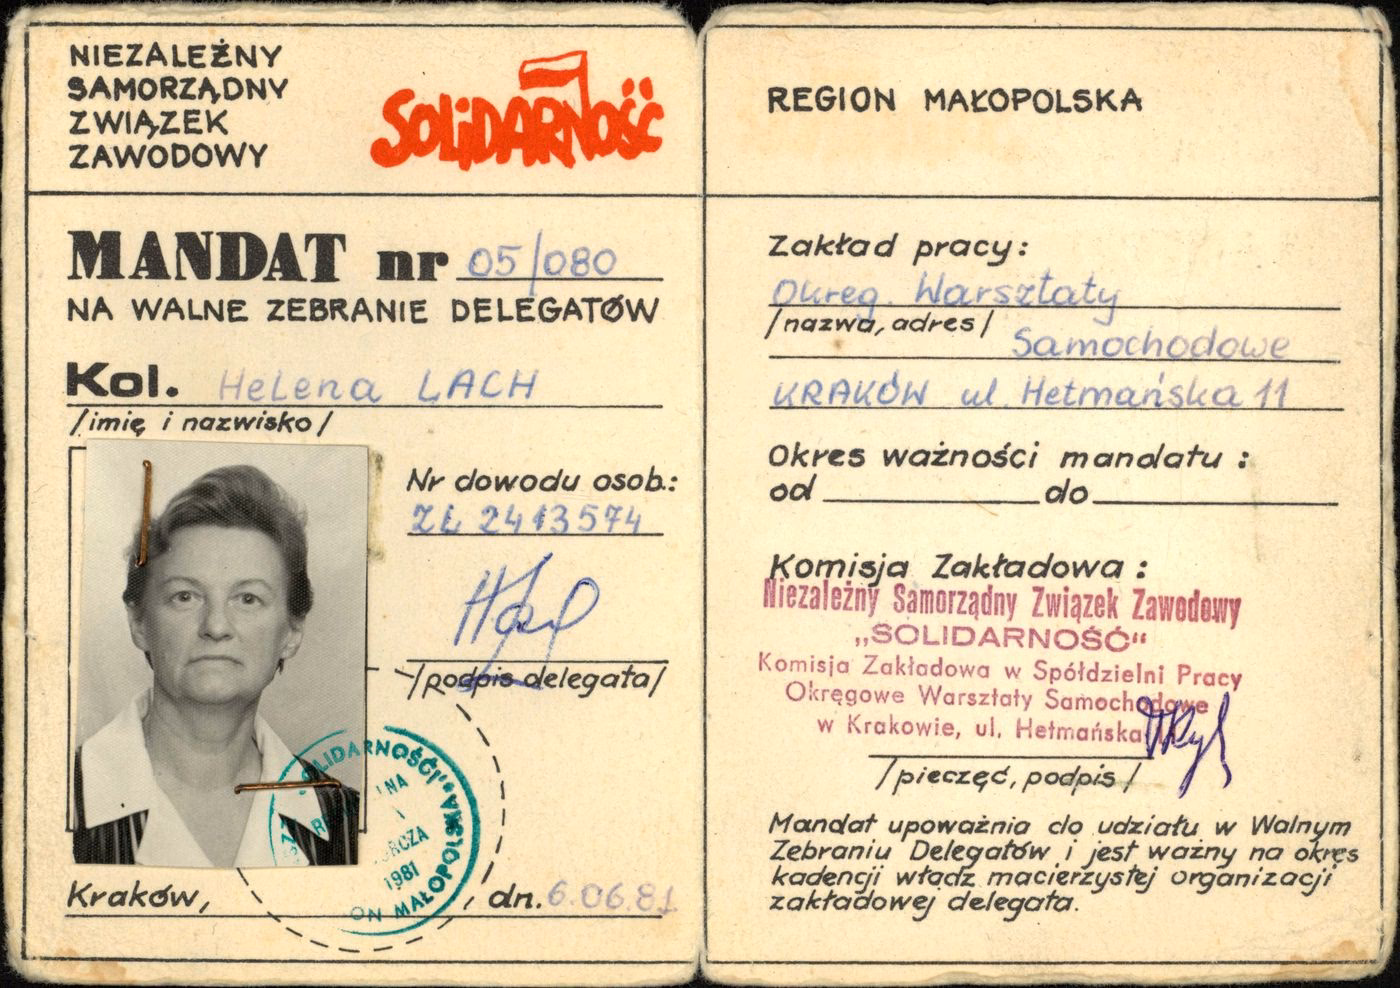 NIEZALEŻNY
SAMORZĄDNY
ZWIĄZEK
ZAWODOWY
SOLIDARNOŚĆ
MANDAT nr 05/080
NA WALNE ZEBRANIE DELEGATÓW
Kol. Helena LACH
/imię i nazwisko/
Nr dowodu osob.:
ZŁ 2413574
/podpis delegata/
SOLIDARNOŚCI"
MAŁOPOLSKA
1981
Kraków, dn. 6.06.81
REGION MAŁOPOLSKA
Zakład pracy:
Okręg. Warsztaty
/nazwa, adres/
Samochodowe
KRAKÓW ul. Hetmańska 11
Okres ważności mandatu :
od do
Komisja Zakładowa :
Niezależny Samorządny Związek Zawodowy
„SOLIDARNOŚĆ"
Komisja Zakładowa w Spółdzielni Pracy
Okręgowe Warsztaty Samochodowe
w Krakowie, ul. Hetmańska
/pieczęć, podpis/
Mandat upoważnia do udziału w Walnym
Zebraniu Delegatów i jest ważny na okres
kadencji władz macierzystej organizacji
zakładowej delegata.